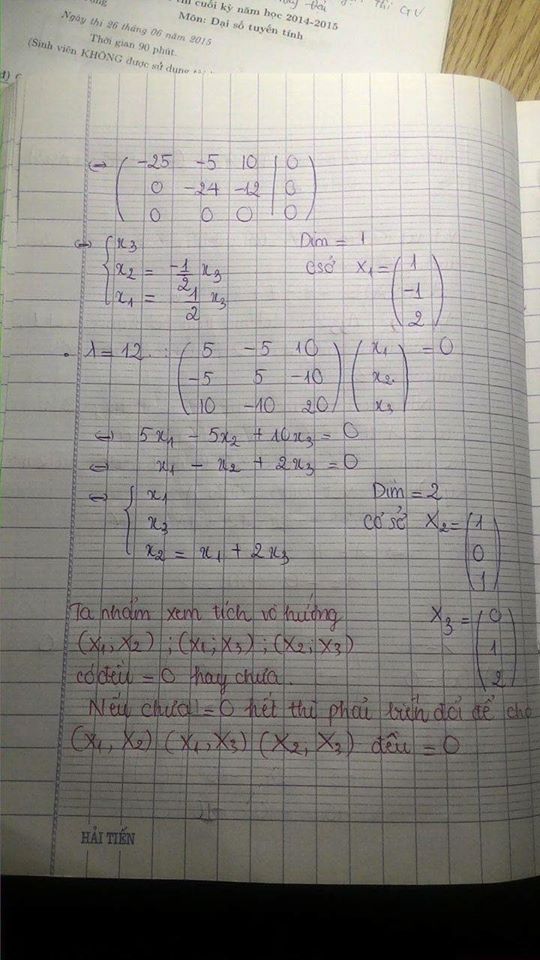 thi cuối kỳ năm học 2014-2015
Môn: Đại số tuyến tính
Ngày thi 26 tháng 06 năm 2015
Thời gian 90 phút.
(Sinh viên KHÔNG được sử dụng
⇔ ( -25 -5 10 | 0
0 -24 -12 | 0
0 0 0 | 0 )
⇔ { x₃ Dim = 1
x₂ = -1/2 x₃ cơ sở X₁ = ( 1
x₁ = 1/2 x₃ -1
2 )
• λ = 12 : ( 5 -5 10 ) ( x₁ ) = 0
( -5 5 -10 ) ( x₂ )
( 10 -10 20 ) ( x₃ )
⇔ 5x₁ - 5x₂ + 10x₃ = 0
⇔ x₁ - x₂ + 2x₃ = 0
⇔ { x₁ Dim = 2
x₃ cơ sở X₂ = ( 1
x₂ = x₁ + 2x₃ 0
1 )
Ta nhẩm xem tích vô hướng X₃ = ( 0
(X₁, X₂) ; (X₁; X₃) ; (X₂; X₃) 1
có đều = 0 hay chưa. 2 )
Nếu chưa = 0 hết thì phải biến đổi để cho
(X₁, X₂) (X₁, X₃) (X₂, X₃) đều = 0
HẢI TIẾN